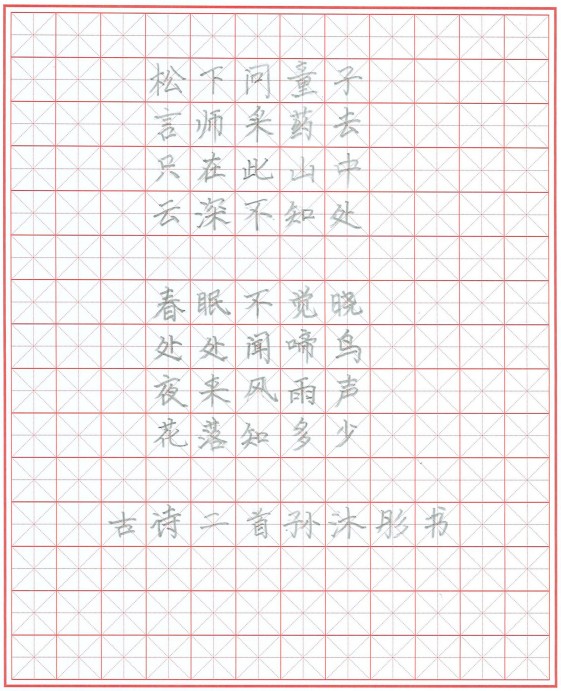 松下问童子
言师采药去
只在此山中
云深不知处
春眠不觉晓
处处闻啼鸟
夜来风雨声
花落知多少
古诗二首孙沐彤书